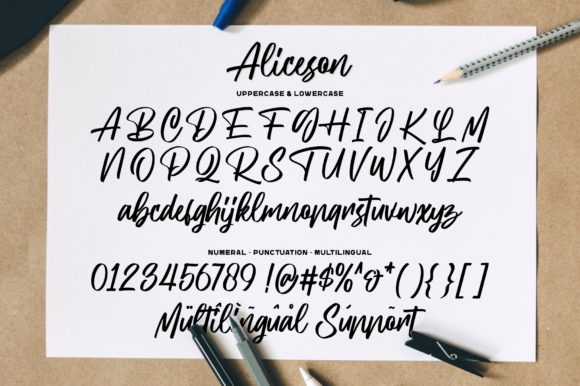 Aliceson
UPPERCASE & LOWERCASE
ABCDEFGHIJKLM
NOPQRSTUVWXYZ
abcdefghijklmnopqrstuvwxyz
NUMERAL - PUNCTUATION - MULTILINGUAL
0123456789 !@#$%^&*(){}[]
Mültîlìñgûål Súppõrt